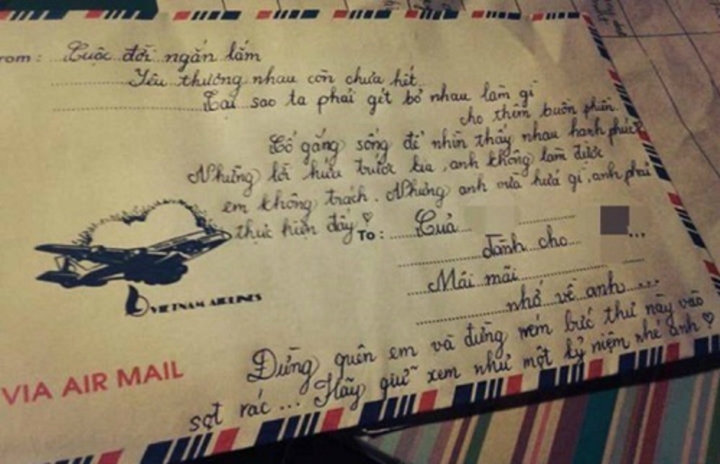 From: Cuộc đời ngắn lắm
Yêu thương nhau còn chưa hết
Tại sao ta phải gét bỏ nhau làm gì
cho thêm buồn phiền
Cố gắng sống để nhìn thấy nhau hạnh phúc
Những lời hứa trước kia, anh không làm được
em không trách. Nhưng anh vừa hứa gì, anh phải
thực hiện đấy ♡
To: Của
dành cho ...
Mãi mãi
nhớ về anh ...
VIETNAM AIRLINES
VIA AIR MAIL
Đừng quên em và đừng ném bức thư này vào
sọt rác... Hãy giữ xem như một kỷ niệm nhé anh ♡